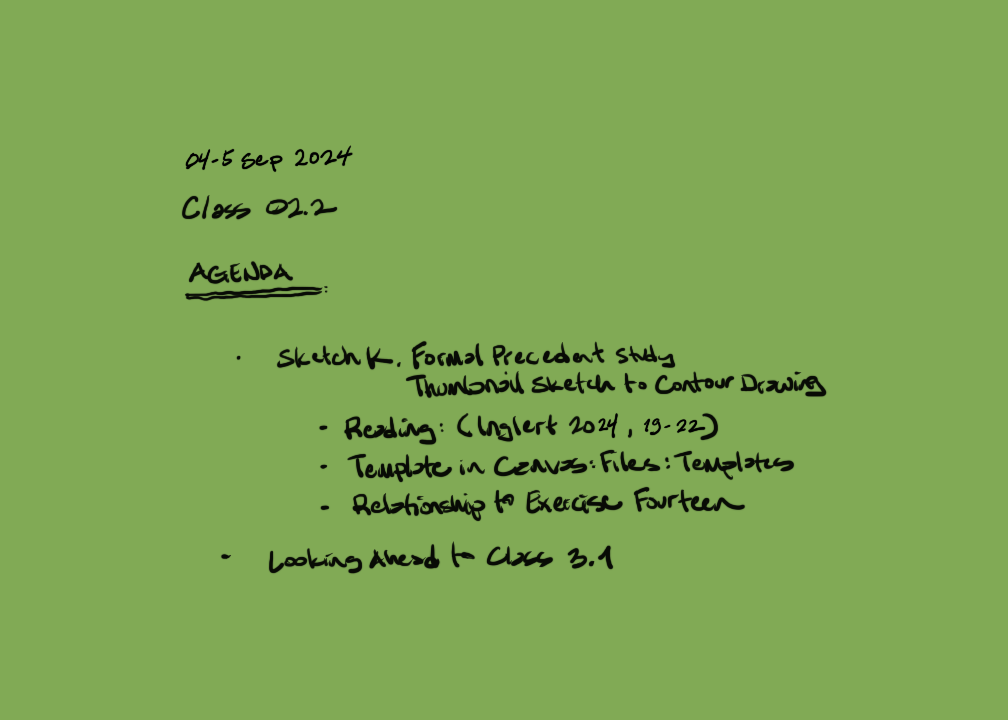 04-5 Sep 2024
Class 02.2
AGENDA
· Sketch K. Formal Precedent Study
Thumbnail Sketch to Contour Drawing
- Reading: (Inglert 2024, 19-22)
- Template in Canvas: Files: Templates
- Relationship to Exercise Fourteen
- Looking Ahead to Class 3.1